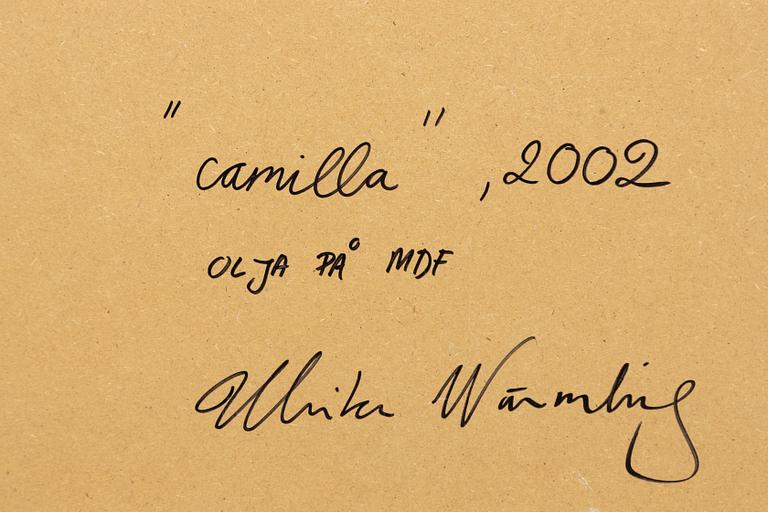 "camilla", 2002
OLJA PÅ MDF
Ulrika Wärmling